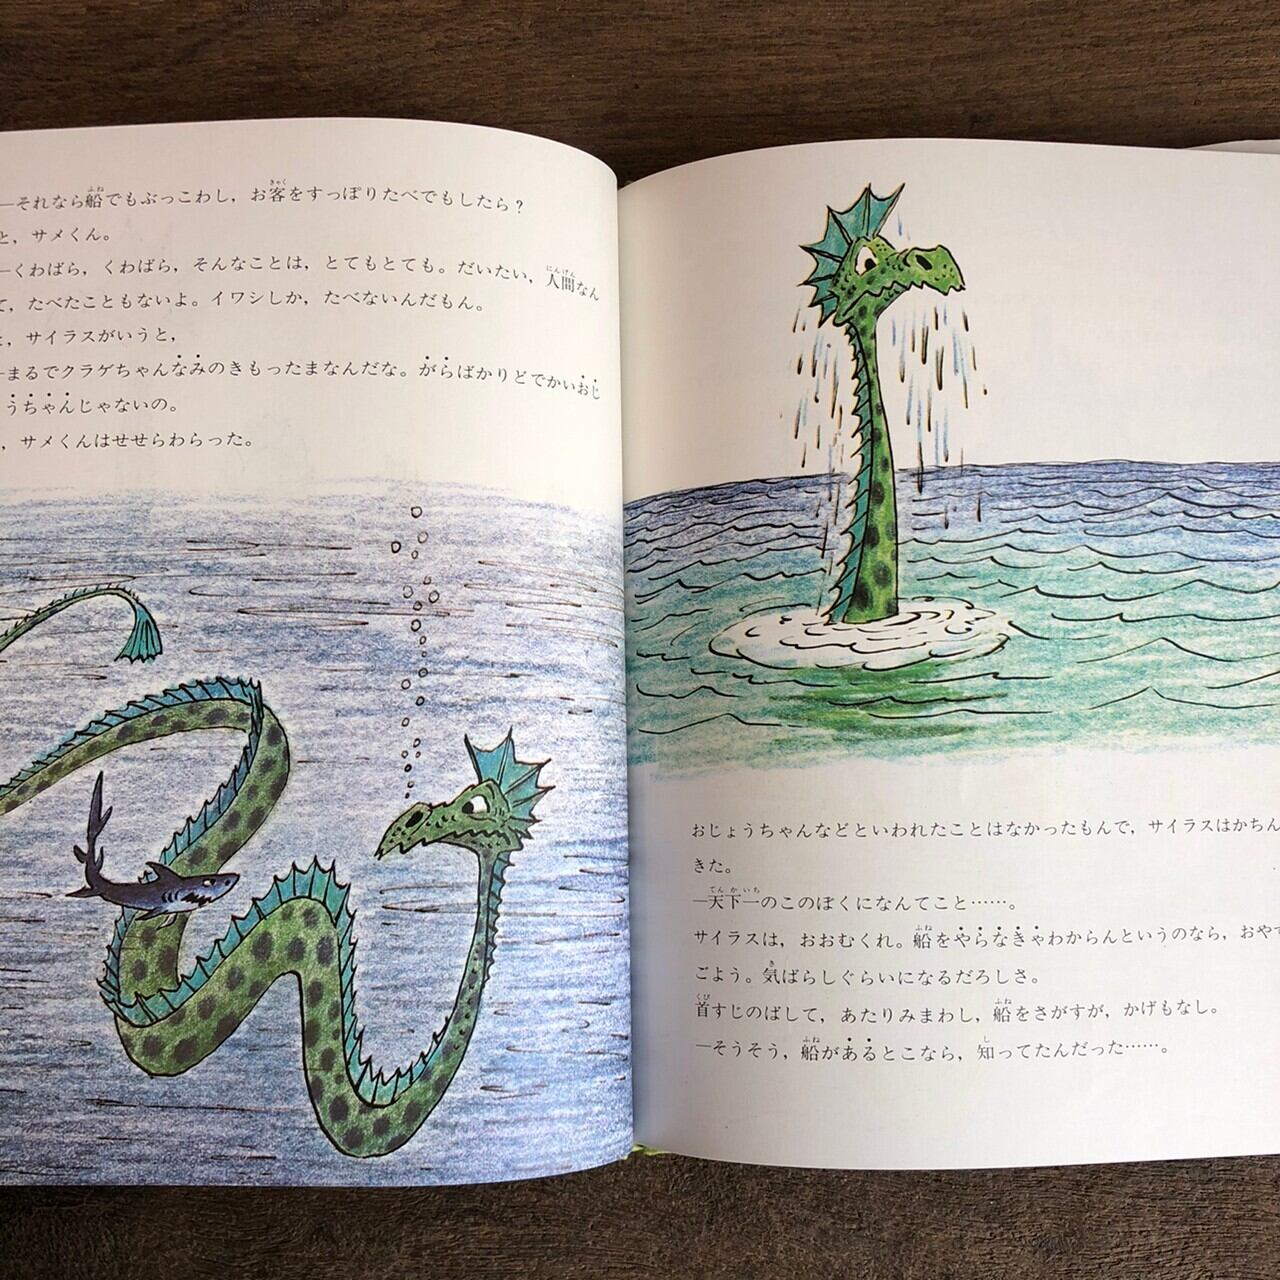 ―それなら船でもぶっこわし，お客をすっぽりたべでもしたら？
と，サメくん。
―くわばら，くわばら，そんなことは，とてもとても。だいたい，人間なん
て，たべたこともないよ。イワシしか，たべないんだもん。
，サイラスがいうと，
―まるでクラゲちゃんなみのきもったまなんだな。がらばかりどでかいおじ
ょうちゃんじゃないの。
，サメくんはせせらわらった。
おじょうちゃんなどといわれたことはなかったもんで，サイラスはかちん
きた。
―天下一のこのぼくになんてこと……。
サイラスは，おおむくれ。船をやらなきゃわからんというのなら，おやす
ごよう。気ばらしぐらいになるだろしさ。
首すじのばして，あたりみまわし，船をさがすが，かげもなし。
―そうそう，船があるとこなら，知ってたんだった……。